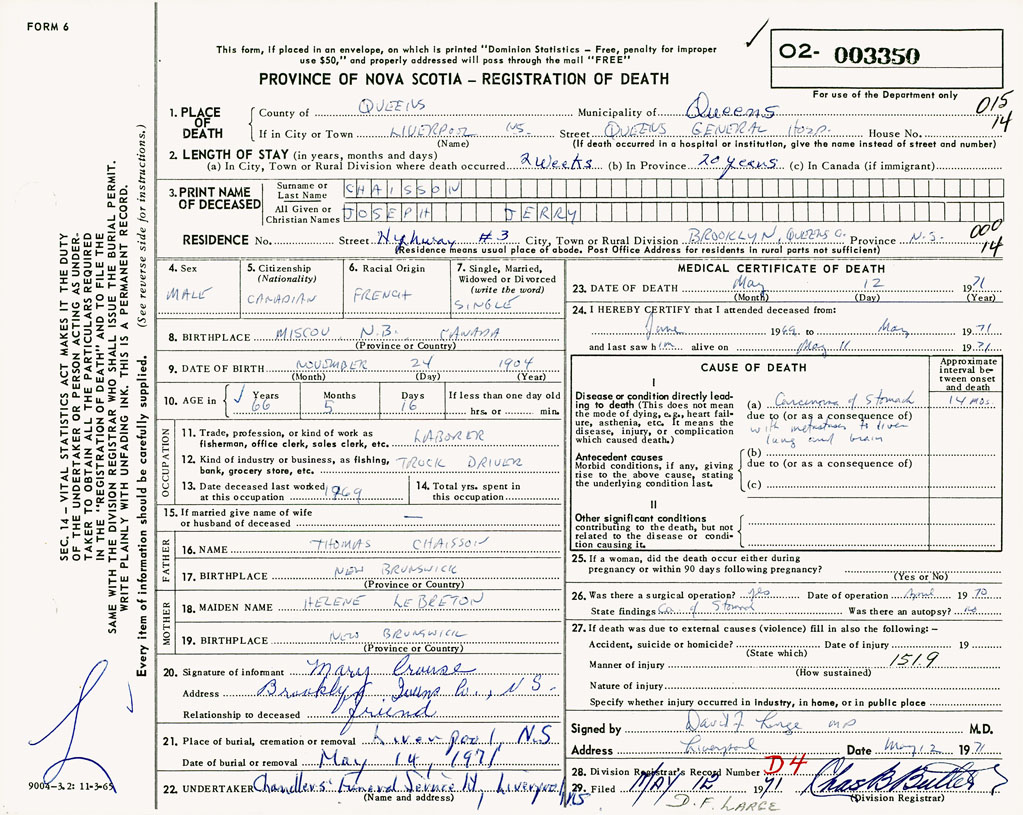 FORM 6
This form, if placed in an envelope, on which is printed "Dominion Statistics – Free, penalty for improper
use $50," and properly addressed will pass through the mail "FREE"
✓
O2- 003350
For use of the Department only
PROVINCE OF NOVA SCOTIA – REGISTRATION OF DEATH
015
14
1. PLACE OF DEATH
County of QUEENS Municipality of Queens
If in City or Town LIVERPOOL NS. Street QUEENS GENERAL HOSP. House No.
(Name) (If death occurred in a hospital or institution, give the name instead of street and number)
2. LENGTH OF STAY (in years, months and days)
(a) In City, Town or Rural Division where death occurred 2 weeks (b) In Province 20 years (c) In Canada (if immigrant)
3. PRINT NAME OF DECEASED
Surname or Last Name CHAISSON
All Given or Christian Names JOSEPH JERRY
RESIDENCE No. Street Highway #3 City, Town or Rural Division BROOKLYN, QUEENS C. Province N.S.
(Residence means usual place of abode. Post Office Address for residents in rural parts not sufficient)
000
14
4. Sex
MALE
5. Citizenship
(Nationality)
CANADIAN
6. Racial Origin
FRENCH
7. Single, Married,
Widowed or Divorced
(write the word)
SINGLE
8. BIRTHPLACE MISCOU N.B. CANADA
(Province or Country)
9. DATE OF BIRTH NOVEMBER 24 1904
(Month) (Day) (Year)
10. AGE in ✓ Years Months Days If less than one day old
66 5 16 hrs. or min.
OCCUPATION
11. Trade, profession, or kind of work as
fisherman, office clerk, sales clerk, etc. LABORER
12. Kind of industry or business, as fishing,
bank, grocery store, etc. TRUCK DRIVER
13. Date deceased last worked
at this occupation 1969
14. Total yrs. spent in
this occupation
15. If married give name of wife
or husband of deceased —
FATHER
16. NAME THOMAS CHAISSON
17. BIRTHPLACE NEW BRUNSWICK
(Province or Country)
MOTHER
18. MAIDEN NAME HELENE LEBRETON
19. BIRTHPLACE NEW BRUNSWICK
(Province or Country)
20. Signature of informant Mary Crouse
Address Brooklyn Queens Co., N.S.
Relationship to deceased friend
21. Place of burial, cremation or removal Liverpool, N.S
Date of burial or removal May 14, 1971
22. UNDERTAKER Chandlers' Funeral Service Ltd, Liverpool, NS
(Name and address)
MEDICAL CERTIFICATE OF DEATH
23. DATE OF DEATH May 12 1971
(Month) (Day) (Year)
24. I HEREBY CERTIFY that I attended deceased from:
June 1969 to May 1971
and last saw him alive on May 11 1971
CAUSE OF DEATH
Approximate
interval be-
tween onset
and death
I
Disease or condition directly lead-
ing to death (This does not mean
the mode of dying, e.g., heart fail-
ure, asthenia, etc. It means the
disease, injury, or complication
which caused death.)
(a) Carcinoma of Stomach 14 mos.
due to (or as a consequence of)
with metastases to liver
lung and brain
Antecedent causes
Morbid conditions, if any, giving
rise to the above cause, stating
the underlying condition last.
(b)
due to (or as a consequence of)
(c)
II
Other significant conditions
contributing to the death, but not
related to the disease or condi-
tion causing it.
25. If a woman, did the death occur either during
pregnancy or within 90 days following pregnancy?
(Yes or No)
26. Was there a surgical operation? yes Date of operation April 1970
State findings Ca. of Stomach Was there an autopsy? no
27. If death was due to external causes (violence) fill in also the following: –
Accident, suicide or homicide? Date of injury 19
(State which)
Manner of injury 1519
(How sustained)
Nature of injury
Specify whether injury occurred in industry, in home, or in public place
Signed by David F Large MD M.D.
Address Liverpool Date May 12 1971
28. Division Registrar's Record Number D4
29. Filed MAY 12 1971 Chas B Butler
(Division Registrar)
D. F. LARGE
SEC. 14 – VITAL STATISTICS ACT MAKES IT THE DUTY
OF THE UNDERTAKER OR PERSON ACTING AS UNDER-
TAKER TO OBTAIN ALL THE PARTICULARS REQUIRED
IN THE "REGISTRATION OF DEATH" AND TO FILE THE
SAME WITH THE DIVISION REGISTRAR WHO SHALL ISSUE THE BURIAL PERMIT.
WRITE PLAINLY WITH UNFADING INK. THIS IS A PERMANENT RECORD.
Every item of information should be carefully supplied. (See reverse side for instructions.)
9004-3.2: 11-3-65